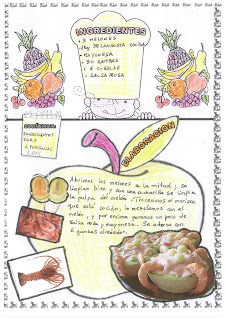 INGREDIENTES
3 MELONES
DE LANGOSTA COCIDA
MAYONESA
30 GAMBAS
6 CIGALAS
SALSA ROSA
PARA
6 PERSONAS
ELABORACION
Abrimos los melones a la mitad, y se
limpian bien y con una cucharilla se limpia
la pulpa del melón. Troceamos el marisco
que esté cocido, le mezclamos con el
melón, y por encima ponemos un poco de
salsa rosa y mayonesa. Se adorna con
6 gambas alrededor.